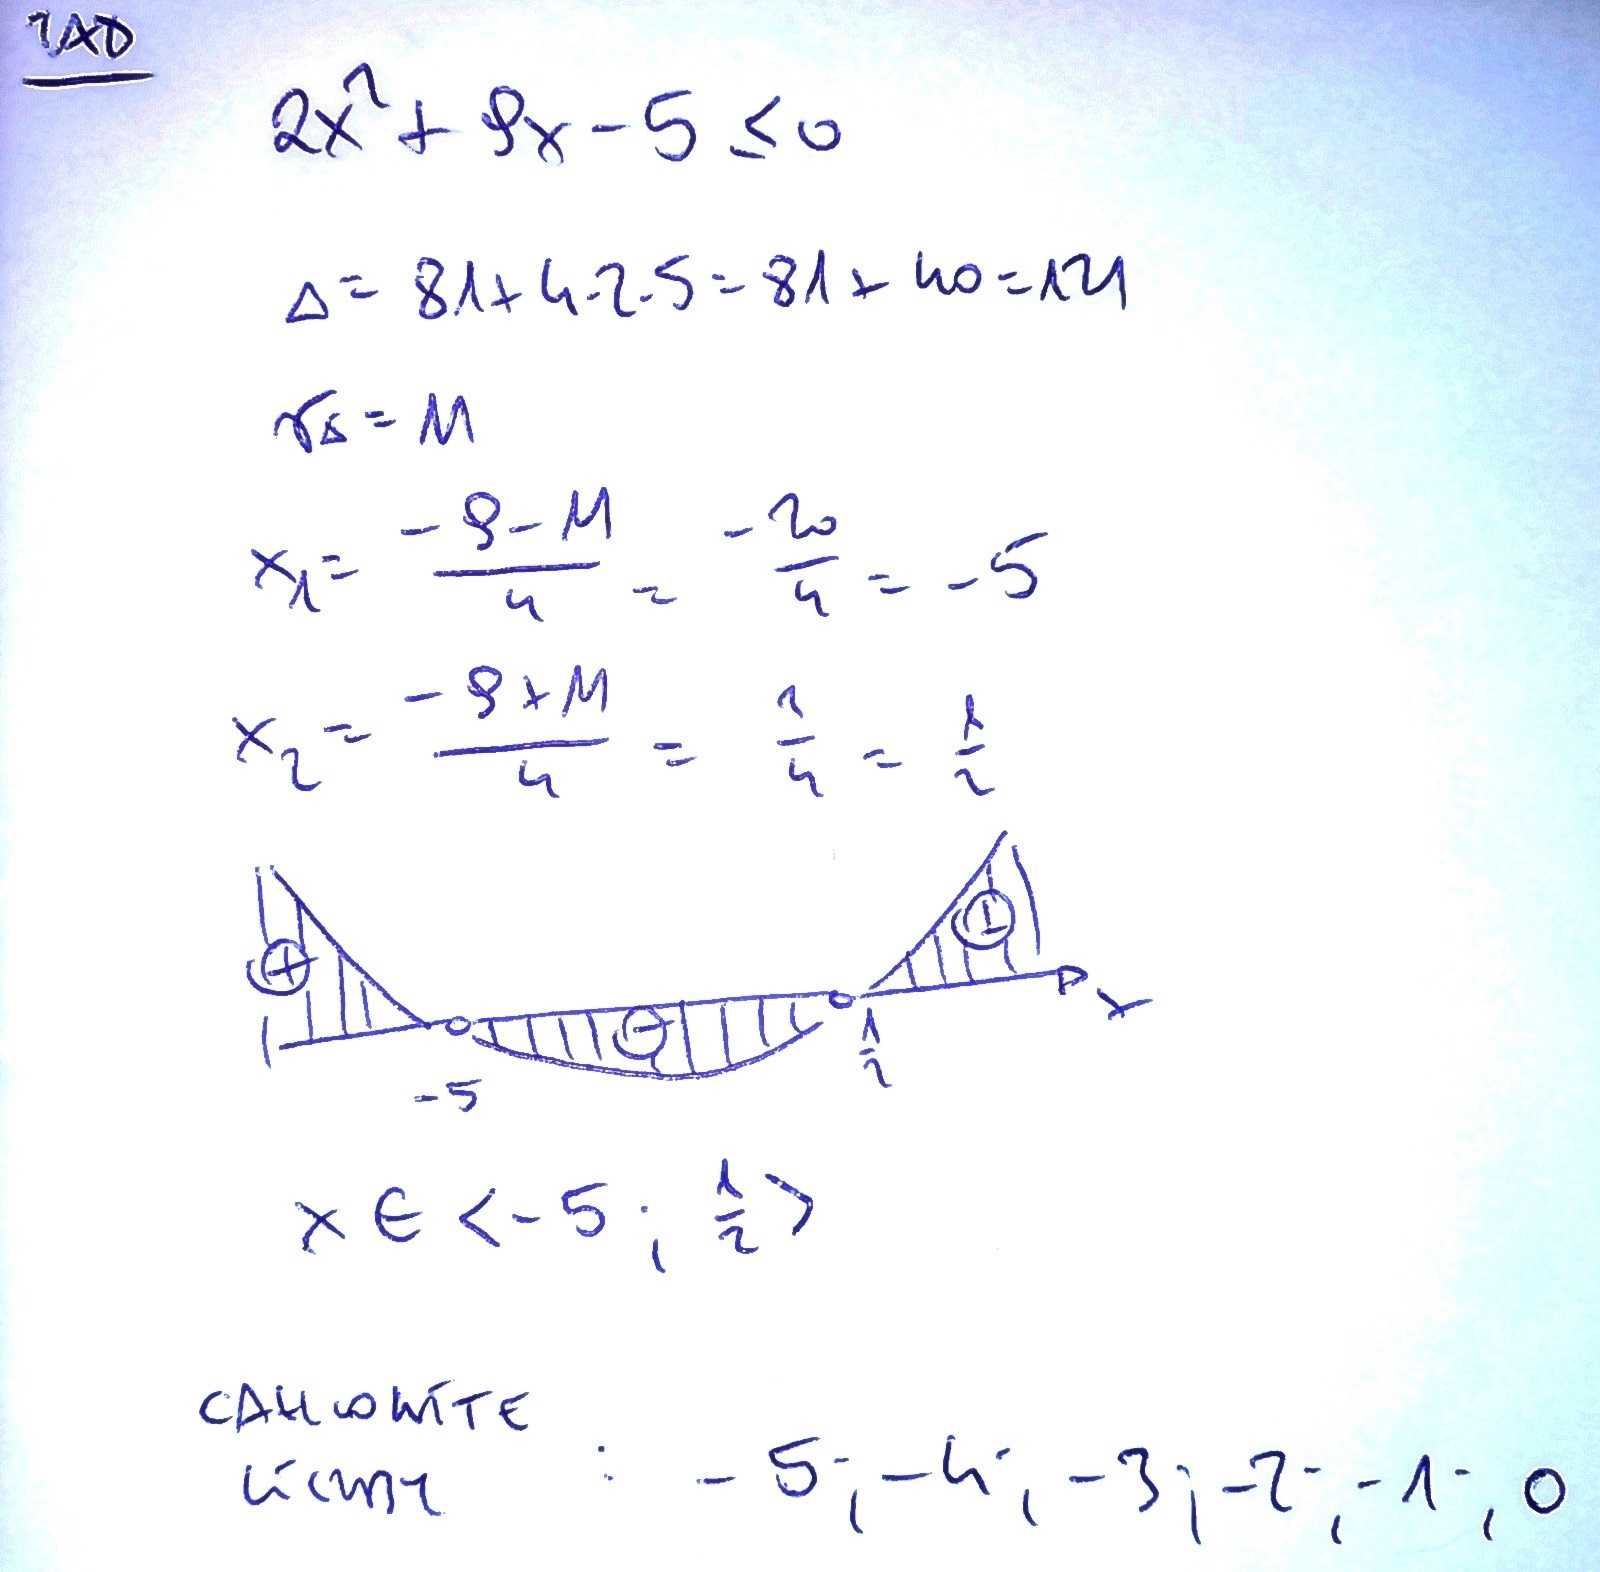 ZAD
2x² + 9x - 5 ≤ 0
Δ = 81 + 4·2·5 = 81 + 40 = 121
√Δ = 11
x₁ = (-9-11)/4 = -20/4 = -5
x₂ = (-9+11)/4 = 2/4 = 1/2
+ - +
-5 1/2 x
x ∈ <-5; 1/2>
CAŁKOWITE
LICZBY : -5; -4; -3; -2; -1; 0